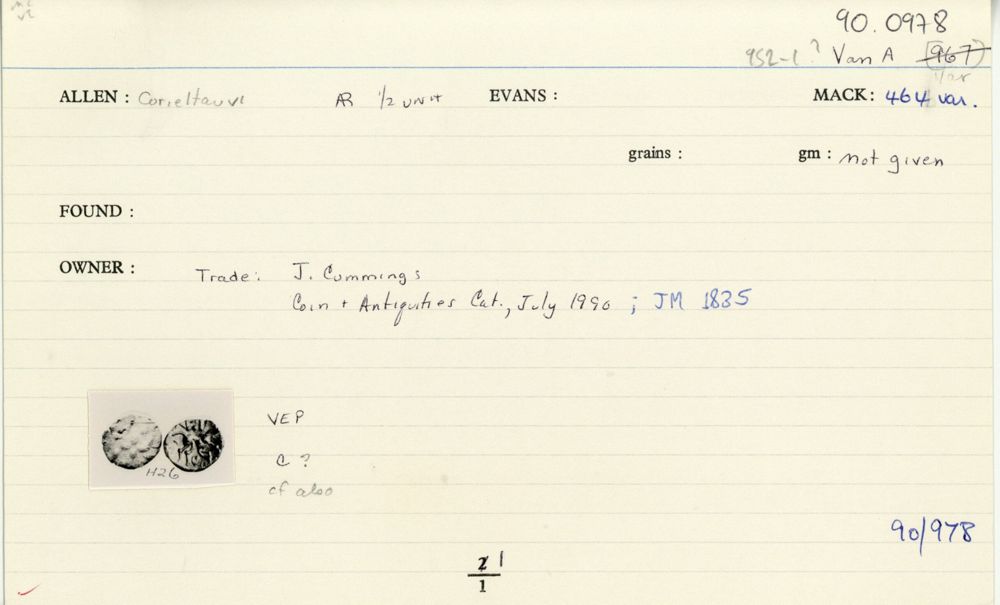 90.0978
952-1? Van A (967)
var
ALLEN : Corieltauvi AR 1/2 unit EVANS : MACK: 464 var.
grains : gm : not given
FOUND :
OWNER : Trade: J. Cummings
Coin + Antiquities Cat., July 1990 ; JM 1835
VEP
C ?
H26
cf also
90/978
1
1